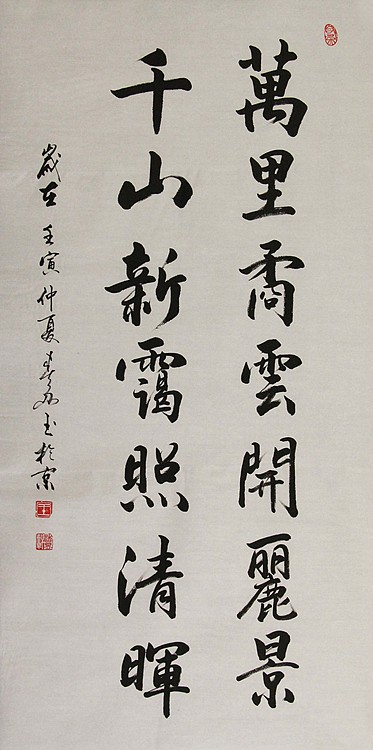 萬里矞雲開麗景
千山新靄照清暉
歲在壬寅仲夏 於京